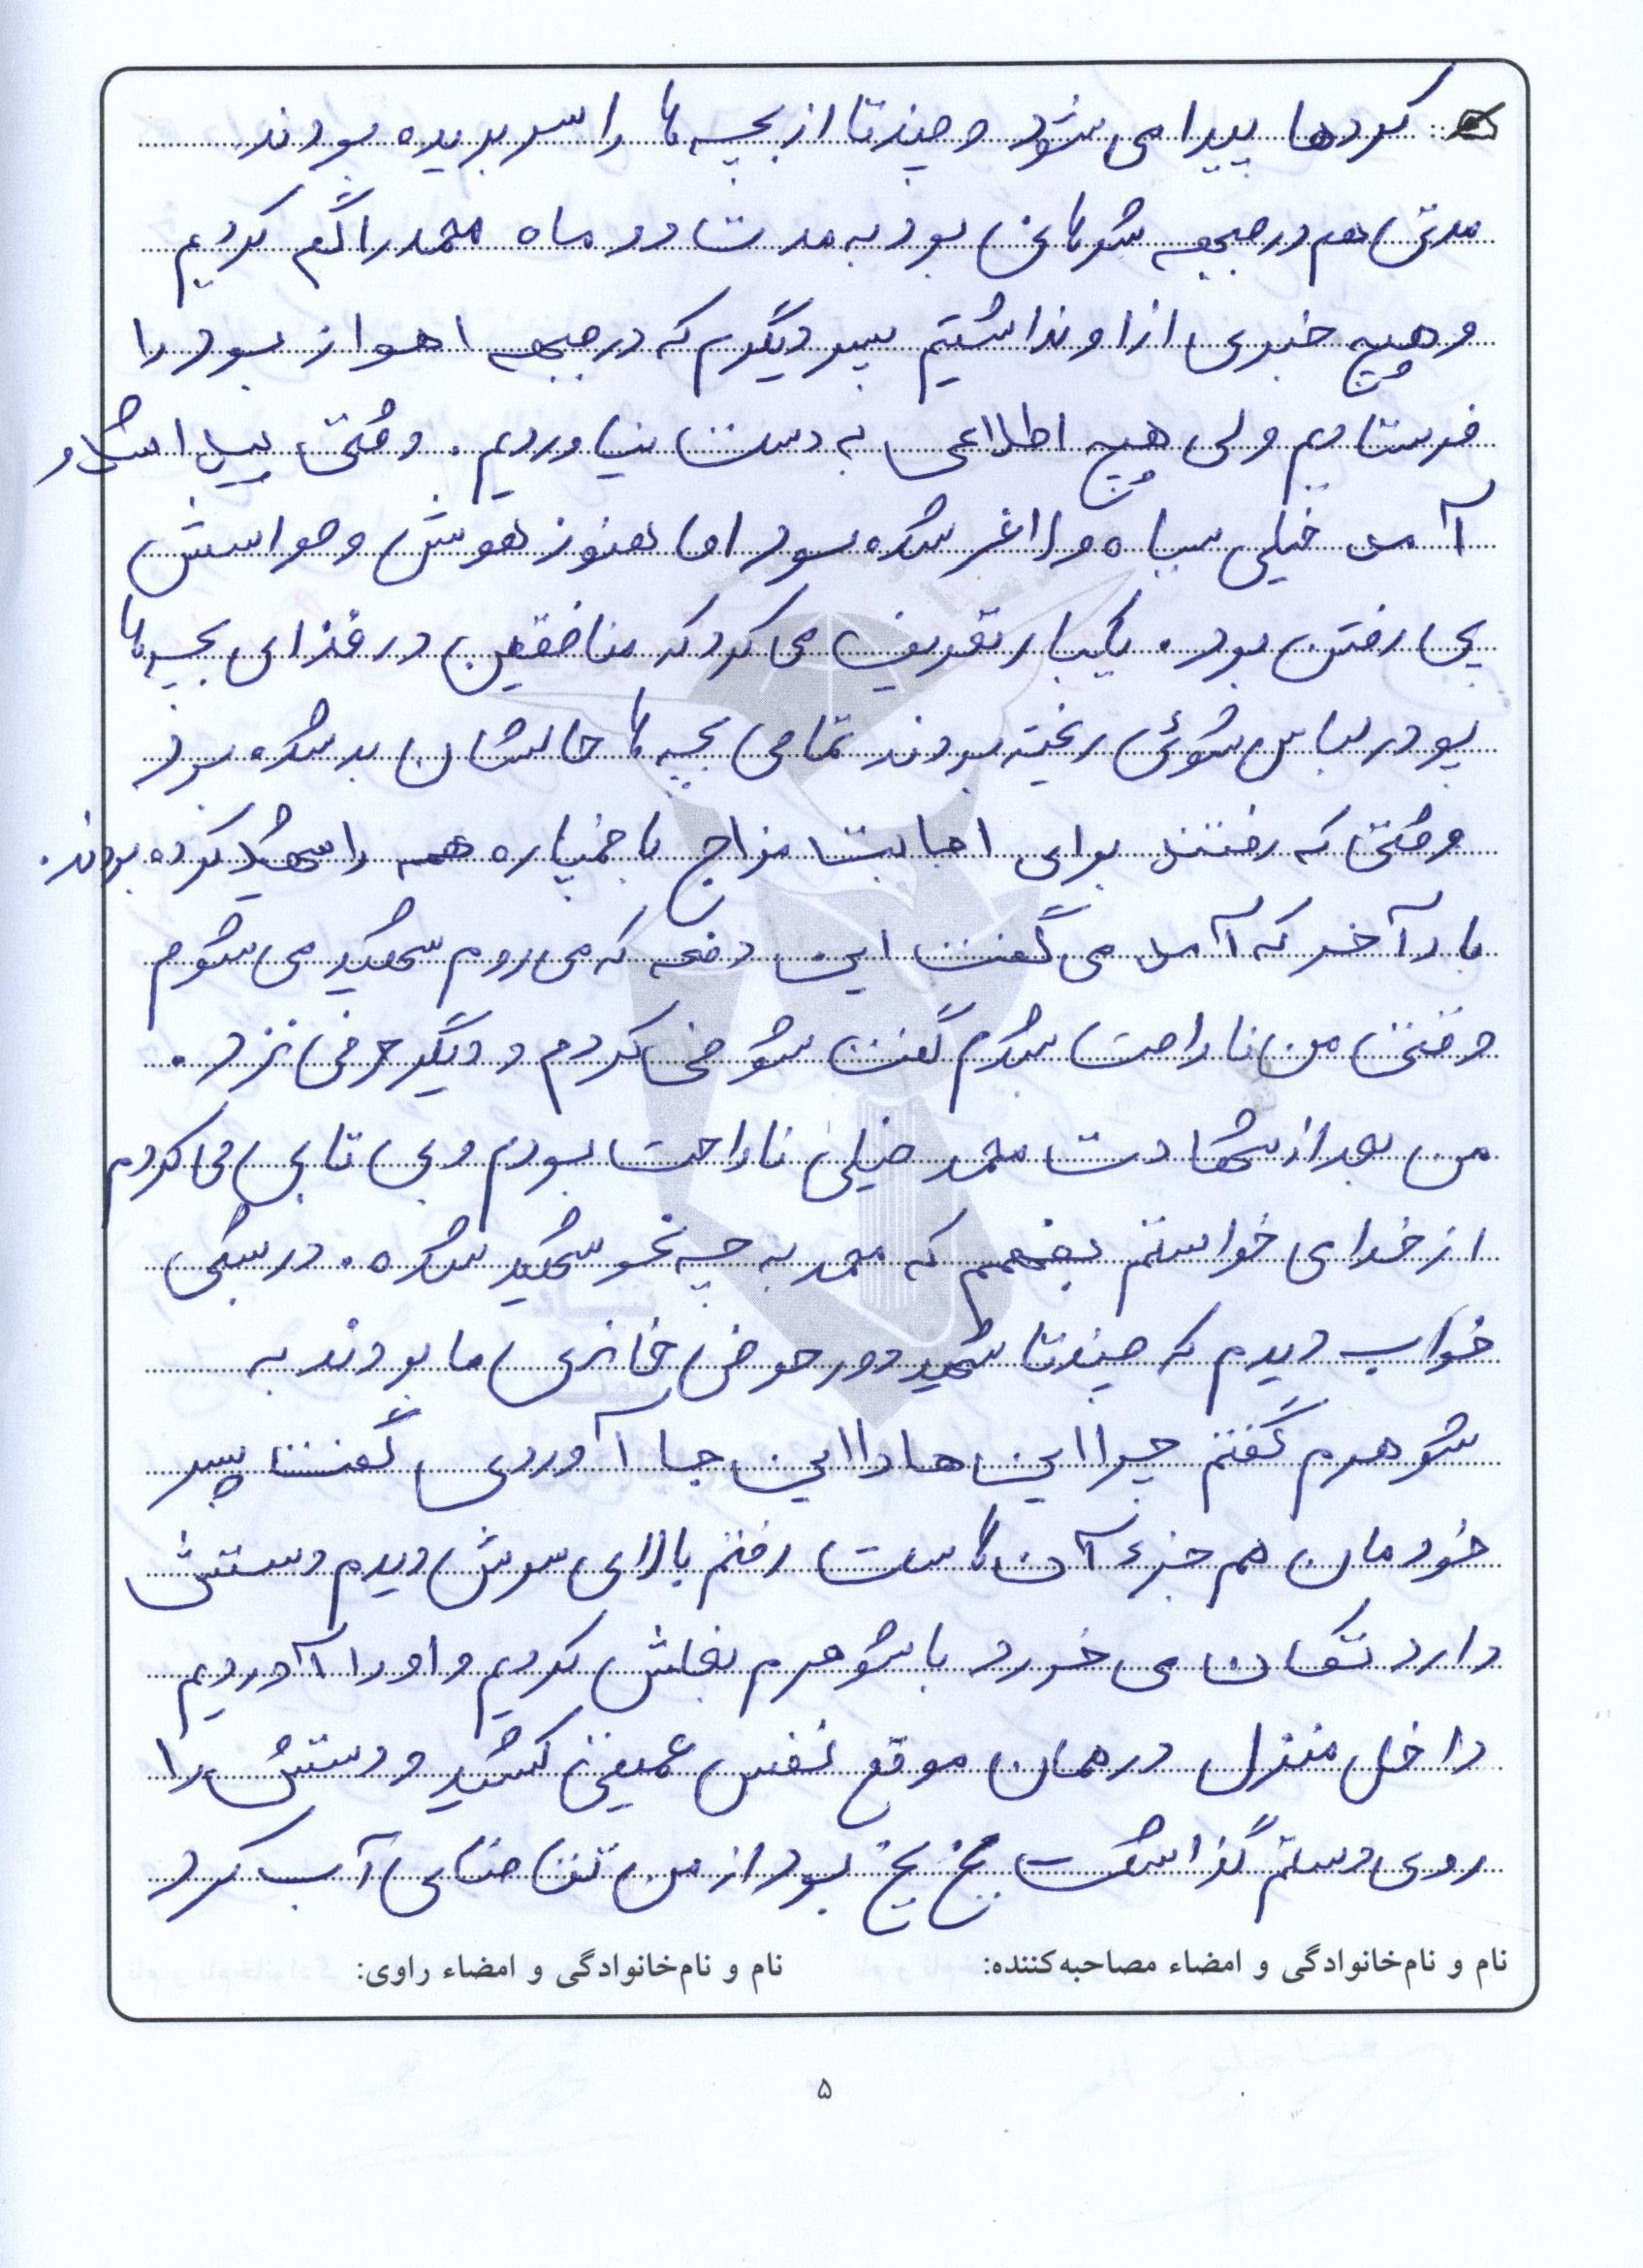 کردها پیدا می شود و چندتا از بچه ها را سر بریده بودند.
مدتی هم در جبهه بود به مدت دو ماه محمد را گم کردیم
و هیچ خبری از او نداشتیم پسر دیگرم که در جبهه اهواز بود را
فرستادیم ولی هیچ اطلاعی به دست نیاوردیم. وقتی پیدا شد و
آمد خیلی سیاه و لاغر شده بود اما هنوز هوش و حواسش
پی رفتن بود. یکبار تعریف می کرد که منافقین در غذای بچه ها
پودر لباس شوئی ریخته بودند تمامی بچه ها حالشان بد شده بود
وقتی که رفتند برای اجابت مزاج با خمپاره همه را شهید کرده بودند.
بار آخر که آمد می گفت این دفعه که می روم شهید می شوم
وقتی من ناراحت شدم گفت شوخی کردم و دیگر حرفی نزد.
من بعد از شهادت محمد خیلی ناراحت بودم و بی تابی می کردم
از خدا می خواستم بفهمم که محمد به چه نحو شهید شده. در شبی
خواب دیدم که چندتا شهید دور حوض خانه ی ما بودند به
شوهرم گفتم چرا این ها را این جا آوردی گفت پسر
خودمان هم جزء آن هاست رفتم بالای سرش دیدم دستش
دارد تکان می خورد با شوهرم بغلش کردیم و او را آوردیم
داخل منزل در همان موقع نفس عمیقی کشید و دستش را
روی دستم گذاشت یخ یخ بود از من تقاضای آب کرد
نام و نام‌خانوادگی و امضاء مصاحبه‌کننده: نام و نام‌خانوادگی و امضاء راوی:
۵